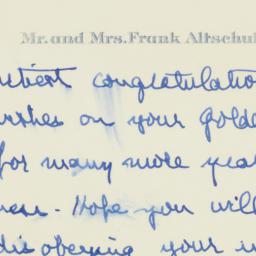 Mr. and Mrs. Frank Altschul
congratulatio
wishes on your golde
for many more yea
Hope you will
disobeying your